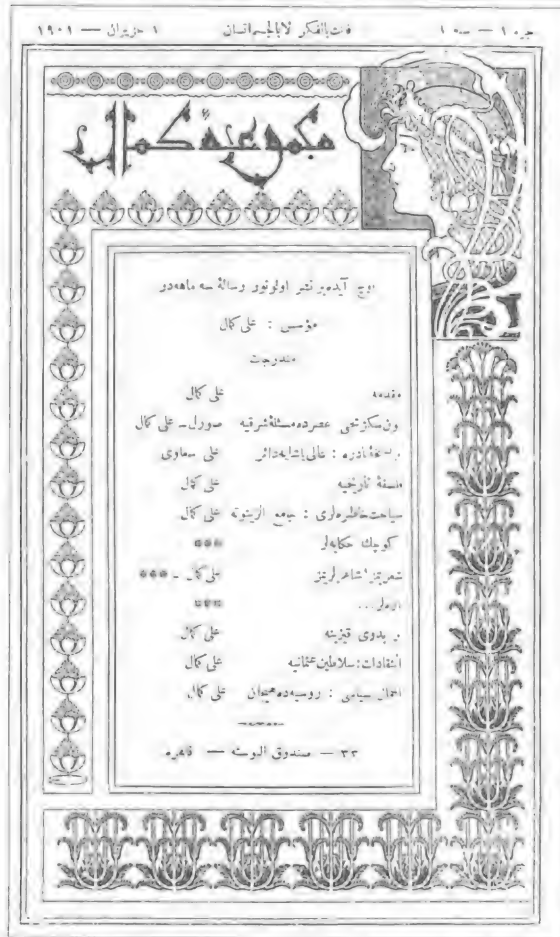 جزء ١ — سنه ١ فانت بالفكر لابالجسم انسان ١ حزيران — ١٩٠١
مجموعهٔ كمال
اوچ آيده بر نشر اولونور رسالهٔ سه ماهه در
مؤسس : على كمال
مندرجات
مقدمه على كمال
اون سكزنجى عصرده مسئلهٔ شرقيه صورل ـ على كمال
بر نسخهٔ نادره : عالى پاشايه دائر على سعاوى
فلسفهٔ تاريخيه على كمال
سياحت خاطره لرى : جامع الزيتونه على كمال
كوچك حكايه لر ***
شعريمز، شاعرلريمز على كمال ـ ***
...
***
بر بدوى قيزينه على كمال
انتقادات : سلاطين عثمانيه على كمال
اجمال سياسى : روسيه ده هيجان على كمال
٣٣ — صندوق البوسته — قاهره